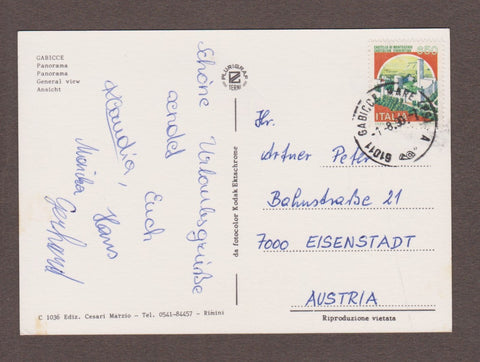 GABICCE
Panorama
Panorama
General view
Ansicht
PLURIGRAF
TERNI
Schöne Urlaubsgrüße
sendet Euch
Klaudia, Hans
Marika Gerhard
da fotocolor Kodak Ektachrome
CASTELLO DI MONTECCHIO
CASTIGLION FIORENTINO
650
ITALIA
61011 GABICCE MARE
Hr.
Artner Peter
Bahnstraße 21
7000 EISENSTADT
AUSTRIA
C 1036 Ediz. Cesari Marzio - Tel. 0541-84457 - Rimini
Riproduzione vietata